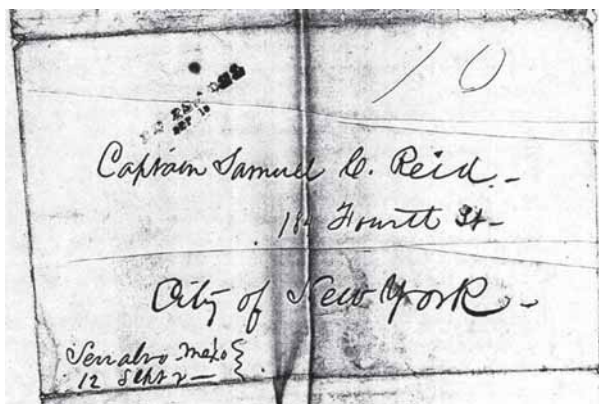 10
SEP 10
Captain Samuel C. Reid.-
Fourth St-
City of New York-
Serralvo Mexo
12 Sept